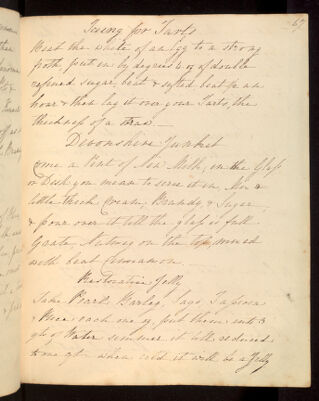 67
Iceing for Tarts
Beat the white of an egg to a strong
froth, put in by degrees 4 oz of double
refined sugar, beat & sifted beat for an
hour & then lay it over your Tarts, the
thickness of a straw —
Devonshire Junket
a Pint of New Milk, in the Glass
or Dish you mean to serve it in, Mix a
little thick Cream, Brandy & Sugar
& pour over it till the glass is full.
Grate Nutmeg on the top, mixed
with beat Cinnamon.
Restorative Jelly
Take Pearl Barley, Sago, Tapioca
& Rice each one oz, put them into 3
qts of Water simmer it till reduced
to one qt when cold it will be a Jelly